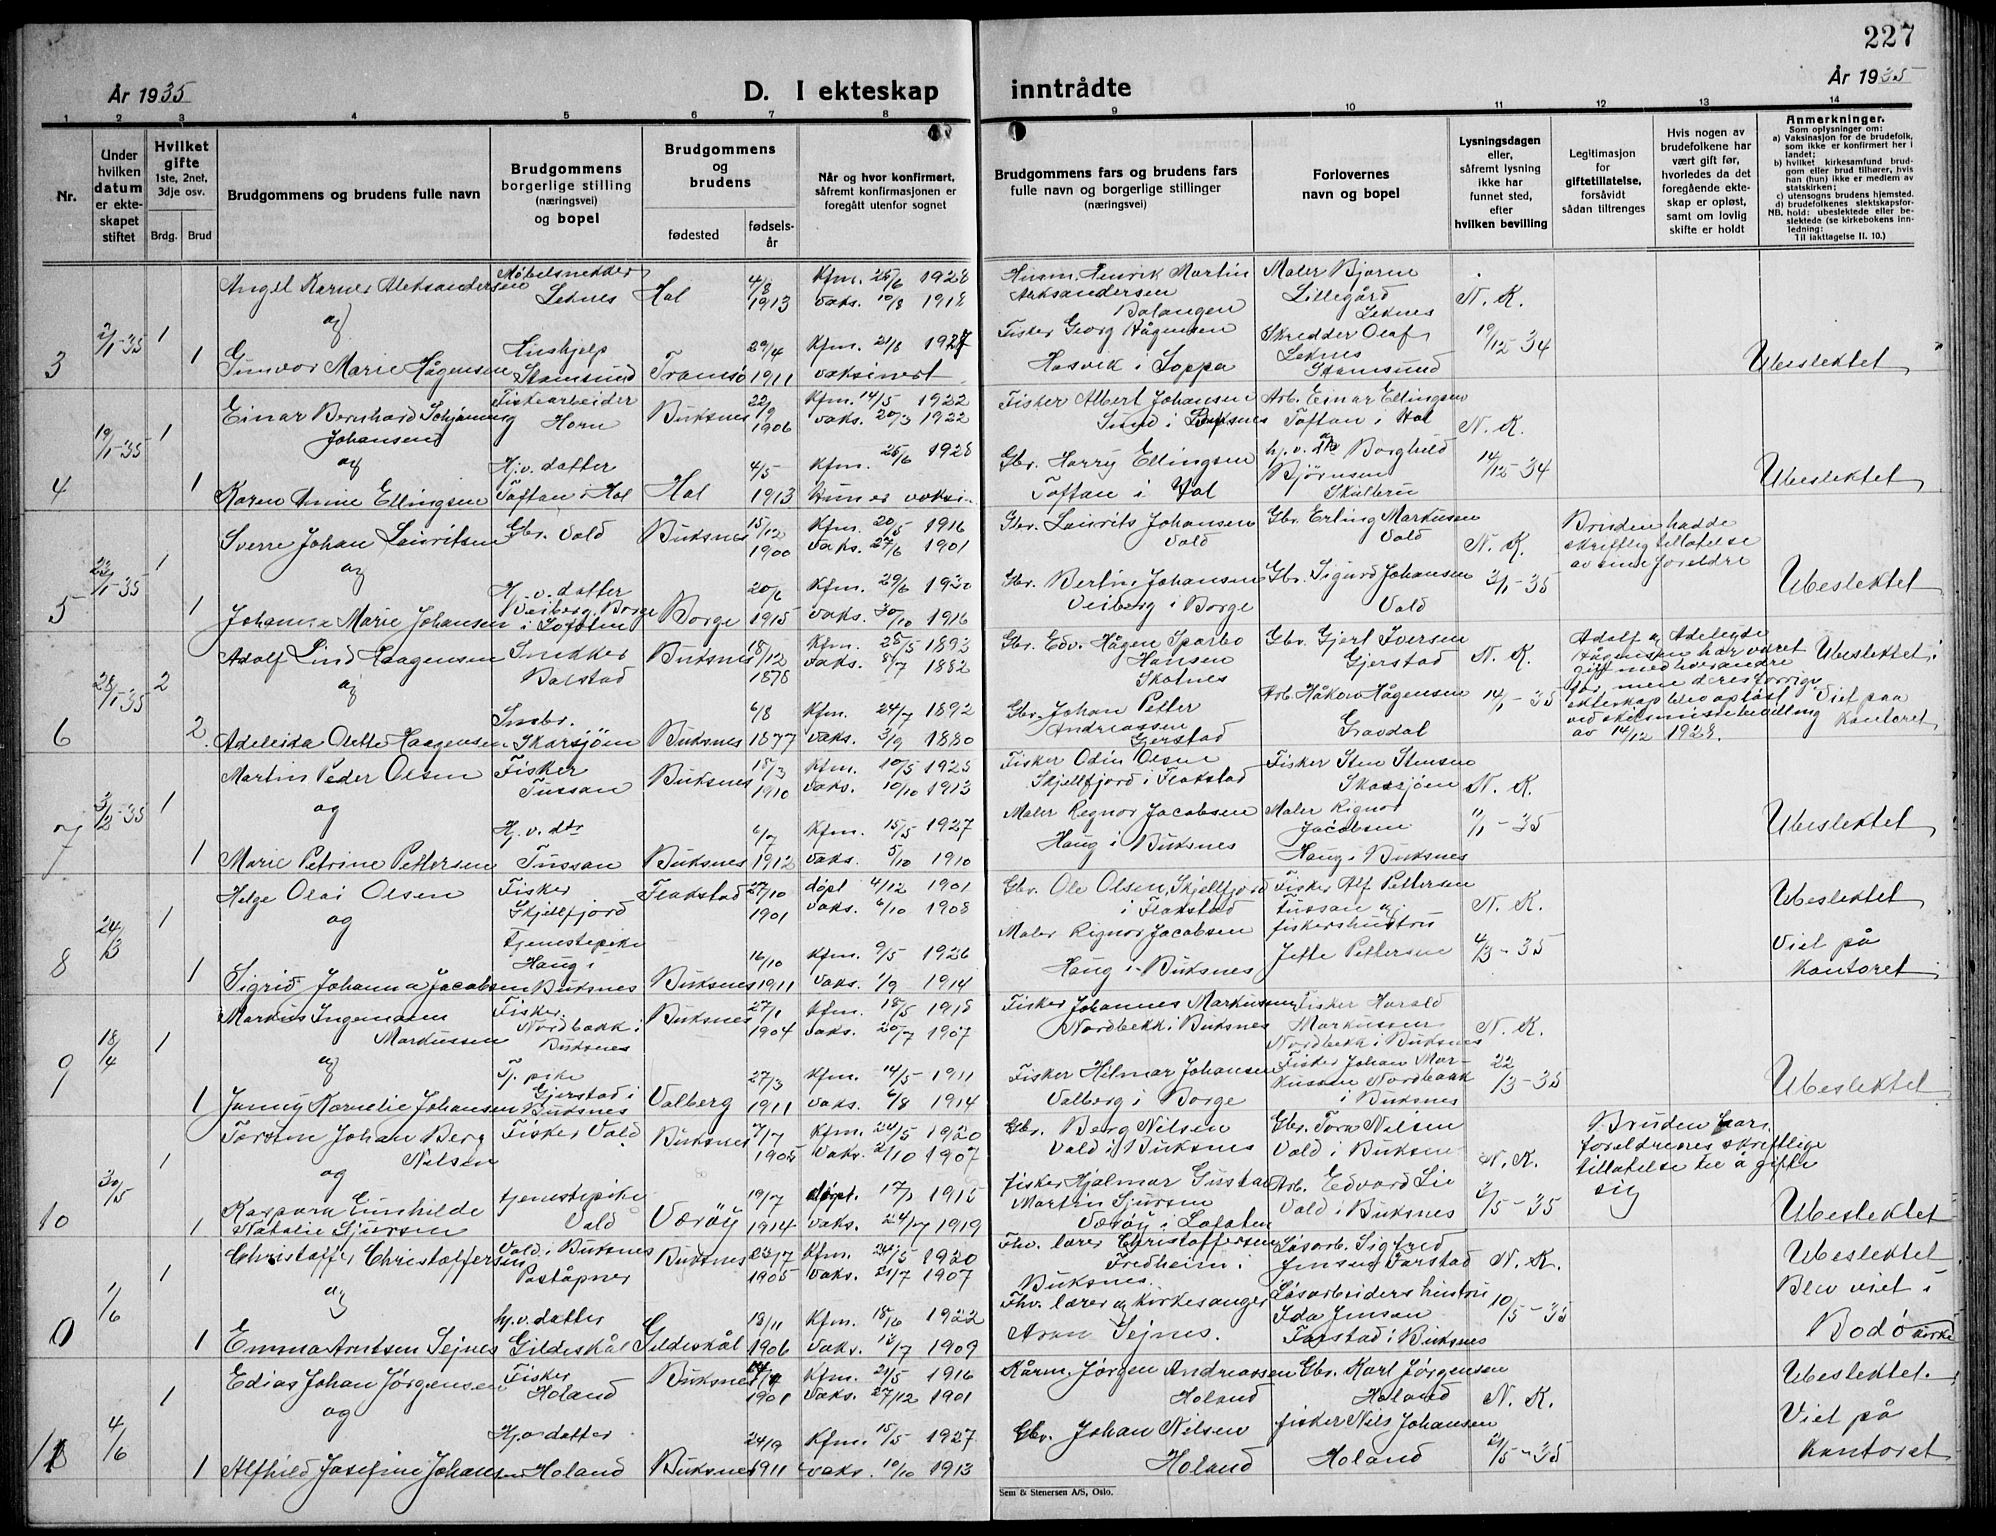 227
År 1935
D. I ekteskap inntrådte
År 1935
1 2 3 4 5 6 7 8 9 10 11 12 13 14
Nr.
Under hvilken datum er ekteskapet stiftet
Hvilket gifte 1ste, 2net, 3dje osv.
Brdg. Brud
Brudgommens og brudens fulle navn
Brudgommens borgerlige stilling (næringsvei) og bopel
Brudgommens og brudens
fødested
fødselsår
Når og hvor konfirmert, såfremt konfirmasjonen er foregått utenfor sognet
Brudgommens fars og brudens fars fulle navn og borgerlige stillinger (næringsvei)
Forlovernes navn og bopel
Lysningsdagen eller, såfremt lysning ikke har funnet sted, efter hvilken bevilling
Legitimasjon for giftetillatelse, forsåvidt sådan tiltrenges
Hvis nogen av brudefolkene har vært gift før, hvorledes da det foregående ekteskap er opløst, samt om lovlig skifte er holdt
Anmerkninger.
Som oplysninger om:
a) Vaksinasjon for de brudefolk, som ikke er konfirmert her i landet;
b) hvilket kirkesamfund brudgom eller brud tilhører, hvis han (hun) ikke er medlem av statskirken;
c) utensogns brudens hjemsted.
d) brudefolkenes slektskapsforhold: ubeslektede eller beslektede (se kirkebokens innledning:
NB.
Til iakttagelse II. 10.)
3 2/1-35 1
Angel Karner Aleksandersen Møbelsnekker Leknes Hol 4/8 1913 Kfm. 25/6 1928 vaks. 10/8 1918
Husm. Henrik Martin Aleksandersen Balangen
Maler Bjarne Lillegård Leknes
N. K.
og
1 Gunvor Marie Hågensen Hushjelp Stamsund Tromsø 29/4 1911 Kfm. 21/8 1927 vaksinert
Fisker Georg Hågensen Hasvik i Loppa
Skredder Olaf Leknes Stamsund
19/12-34
Ubeslektet
4 19/1-35 1
Einar Bernhard Schjønning Johansen Fiskearbeider Horn Buksnes 22/9 1906 Kfm. 14/5 1922 vaks. 20/3 1922
Fisker Albert Johansen Sund i Buksnes
Arb. Einar Ellingsen Toftan i Hol
N. K.
og
1 Karen Anine Ellingsen Hj.v. datter Toftan i Hol Hol 4/5 1913 Kfm. 25/6 1928 Hun er vaksi.
Gbr. Harry Ellingsen Toftan i Hol
hj.v. Borghild Bjørnsen Skulbru
14/12-34
Ubeslektet
5 22/1-35 1
Sverre Johan Lauritsen Gbr. Vold Buksnes 15/12 1900 Kfm. 20/5 1916 vaks. 27/6 1901
Gbr. Laurits Johansen Vold
Gbr. Erling Markusen Vold
N. K.
Bruden hadde skriftlig tillatelse av sine foreldre
og
1 Johanna Marie Johansen Hj.v. datter Veiberg, Borge i Lofoten Borge 20/6 1915 Kfm. 29/6 1930 vaks. 30/10 1916
Gbr. Bertin Johansen Veiberg i Borge
Gbr. Sigurd Johansen Vold
3/1-35
Ubeslektet
6 28/1-35 2
Adolf Lind Haagensen Snekker Balstad Buksnes 18/12 1878 Kfm. 25/5 1893 vaks. 8/7 1882
Gbr. Edv. Hågen Sparbo Hansen Skotnes
Gbr. Gjert Iversen Gjerstad
N. K.
Adolf og Adeleide Hågensen har været gift med hverandre før, men deres forrige ekteskap blev opløst ved skilsmissebevilling av 14/12 1928.
Ubeslektet.
Viet paa kontoret
og
2. Adeleida Olette Haagensen Småbr. Skarsjøen Buksnes 6/8 1877 Kfm. 24/7 1892 vaks. 3/9 1880
Gbr. Johan Petter Andreassen Gjerstad
Arb. Håkon Hågensen Gravdal
14/1-35
7 3/2-35 1
Martin Peder Olsen Fisker Tussan Buksnes 18/3 1910 Kfm. 10/5 1925 vaks. 10/10 1913
Fisker Odin Olsen Skjellfjord i Flakstad
Fisker Sten Stensen Skarsjøen
N. K.
og
1 Marie Petrine Pettersen Hj.v. dtr Tussan Buksnes 6/7 1912 Kfm. 15/5 1927 vaks. 5/10 1910
Maler Regnor Jacobsen Haug i Buksnes
Maler Rignor Jacobsen Haug i Buksnes
11/1-35
Ubeslektet
8 24/3 1
Helge Olai Olsen Fisker Skjellfjord Flakstad 27/10 1901 døpt 4/12 1901 vaks. 6/10 1908
Gbr. Ole Olsen, Skjellfjord i Flakstad
Fisker Alf Pettersen Tussan og fiskershustru
N. K.
Ubeslektet
og
1 Sigrid Johanna Jacobsen Tjenestepike Haug i Buksnes Buksnes 16/10 1911 Kfm. 9/5 1926 vaks. 1/9 1914
Maler Rignor Jacobsen Haug i Buksnes
Jette Pettersen
4/3-35
Viet på Kontoret
9 18/4 1
Markus Ingemann Markussen Fisker. Nordbakk i Buksnes Buksnes 27/1 1904 Kfm. 18/5 1918 vaks. 20/7 1907
Fisker Johannes Markussen Nordbekk i Buksnes
Fisker Harald Markussen Nordbekk i Buksnes
N. K.
og
1 Jenny Kornelie Johansen Tj. pike Gjerstad i Buksnes Valberg 27/3 1911 Kfm. 14/5 1911 vaks. 6/8 1914
Fisker Hilmar Johansen Valberg i Borge
Fisker Johan Markussen Nordbakk i Buksnes
22/3-35
Ubeslektet
10 30/5 1
Torsten Johan Berg Nilsen Fisker Vold Buksnes 7/7 1905 Kfm. 24/5 1920 vaks. 2/10 1907
Gbr. Berg Nilsen Vold i Buksnes
Gbr. Tore Nilsen Vold i Buksnes
N. K.
Bruden har foreldrenes skriftlige tillatelse til å gifte sig
og
1 Kaspara Gunhilde Natalie Sjursen tjenestepike Vold Værøy 19/7 1914 døpt. 17/1 1915 vaks. 24/7 1919
fisker Hjalmar Gustav Martin Sjursen Værøy i Lofoten
Arb. Edvard Lie Vold i Buksnes
3/5-35
Ubeslektet
0 1/6 1
Christoffer Christoffersen Vold i Buksnes Poståpner Buksnes 23/7 1905 Kfm. 24/5 1920 vaks. 21/7 1907
Fhv. lærer Christoffersen Fredheim i Buksnes.
Løsarb. Sigfred Jensen Farstad
N. K.
Ubeslektet
og
1 Emma Arntsen Sejnes hj.v. datter Gildeskål Gildeskål 13/11 1906 Kfm. 18/6 1922 vaks. 13/7 1909
Fhv. lærer og kirkesanger Aron Sejnes.
Løsarbeiders hustru Ida Jensen Farstad i Buksnes
10/5-35
Blev viet i Bodø kirke
11 4/6 1
Edias Johan Jørgensen Fisker Holand Buksnes 1901 Kfm. 21/5 1916 vaks. 27/12 1901
Kårm. Jørgen Andreassen Holand
Gbr. Karl Jørgensen Holand
N. K.
Ubeslektet.
og
1 Alfhild Josefine Johansen Hjv datter Holand Buksnes 24/9 1911 Kfm. 15/5 1927 vaks. 10/10 1913
Gbr. Johan Nilsen Holand
fisker Nils Johansen Holand
21/5-35
Viet på Kontoret
Sem & Stenersen A/S, Oslo.